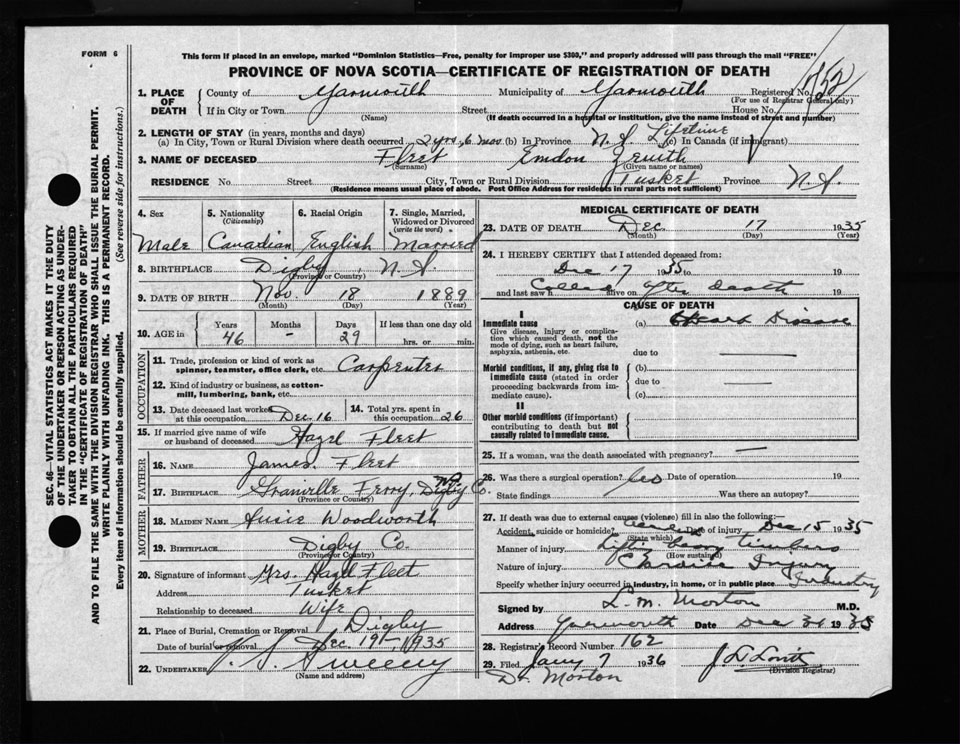 FORM 6
This form if placed in an envelope, marked "Dominion Statistics—Free, penalty for improper use $300," and properly addressed will pass through the mail "FREE"
PROVINCE OF NOVA SCOTIA—CERTIFICATE OF REGISTRATION OF DEATH
1. PLACE OF DEATH County of Yarmouth Municipality of Yarmouth Registered No.
(For use of Registrar General only)
If in City or Town Street House No.
(Name) (If death occurred in a hospital or institution, give the name instead of street and number)
2. LENGTH OF STAY (in years, months and days)
(a) In City, Town or Rural Division where death occurred 2 yrs. 6 mos (b) In Province N.S. Lifetime (c) In Canada (if immigrant)
3. NAME OF DECEASED Fleet Emdon Zenith
(Surname) (Given name or names)
RESIDENCE No. Street City, Town or Rural Division Tusket Province N.S.
(Residence means usual place of abode. Post Office Address for residents in rural parts not sufficient)
SEC. 46—VITAL STATISTICS ACT MAKES IT THE DUTY
OF THE UNDERTAKER OR PERSON ACTING AS UNDER-
TAKER TO OBTAIN ALL THE PARTICULARS REQUIRED
IN THE "CERTIFICATE OF REGISTRATION OF DEATH"
AND TO FILE THE SAME WITH THE DIVISION REGISTRAR WHO SHALL ISSUE THE BURIAL PERMIT.
WRITE PLAINLY WITH UNFADING INK. THIS IS A PERMANENT RECORD.
Every item of information should be carefully supplied. (See reverse side for instructions.)
4. Sex 5. Nationality (Citizenship) 6. Racial Origin 7. Single, Married, Widowed or Divorced (write the word)
Male Canadian English Married
8. BIRTHPLACE Digby, N.S.
(Province or Country)
9. DATE OF BIRTH Nov. 18 1889
(Month) (Day) (Year)
10. AGE in Years Months Days If less than one day old
46 - 29 hrs. or min.
OCCUPATION
11. Trade, profession or kind of work as
spinner, teamster, office clerk, etc. Carpenter
12. Kind of industry or business, as cotton-
mill, lumbering, bank, etc.
13. Date deceased last worked at this occupation Dec. 16 14. Total yrs. spent in this occupation 26
15. If married give name of wife or husband of deceased Hazel Fleet
FATHER
16. NAME James Fleet
17. BIRTHPLACE Granville Ferry, Digby Co.
(Province or Country)
MOTHER
18. MAIDEN NAME Susie Woodworth
19. BIRTHPLACE Digby Co.
(Province or Country)
20. Signature of informant Mrs. Hazel Fleet
Address Tusket
Relationship to deceased Wife
21. Place of Burial, Cremation or Removal Digby
Date of burial or removal Dec. 19th, 1935
22. UNDERTAKER V. S. Sweeny
(Name and address)
MEDICAL CERTIFICATE OF DEATH
23. DATE OF DEATH Dec 17 1935
(Month) (Day) (Year)
24. I HEREBY CERTIFY that I attended deceased from:
Dec 17 1935 to 19
and last saw h alive on 19
Called after Death
CAUSE OF DEATH
I
Immediate cause (a) Heart Disease
Give disease, injury or complica-
tion which caused death, not the
mode of dying, such as heart failure,
asphyxia, asthenia, etc. due to
Morbid conditions, if any, giving rise to (b)
immediate cause (stated in order due to
proceeding backwards from im-
mediate cause). (c)
II
Other morbid conditions (if important)
contributing to death but not
causally related to immediate cause.
25. If a woman, was the death associated with pregnancy? —
26. Was there a surgical operation? Date of operation 19
State findings Was there an autopsy?
27. If death was due to external causes (violence) fill in also the following:—
Accident, suicide or homicide? Date of injury Dec 15 1935
(State which)
Manner of injury Lifting heavy timbers
(How sustained)
Nature of injury Cardiac Injury
Specify whether injury occurred in industry, in home, or in public place Industry
Signed by L. M. Morton M.D.
Address Yarmouth Date Dec 31 1935
28. Registrar's Record Number 162
29. Filed Jany 7 1936
(Division Registrar)
Dr. Morton